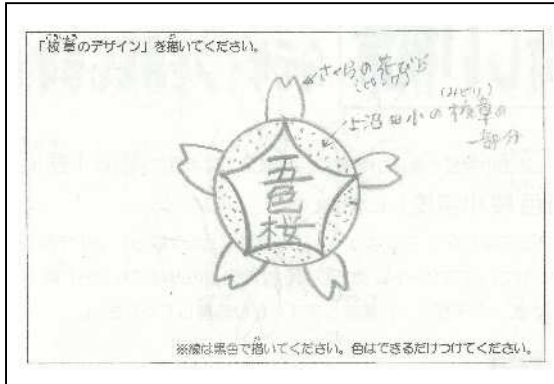 「校章のデザイン」を描いてください。
さくらの花びら
(みどり)
上沼田小の校章の
一部分
五色
桜
※線は黒色で描いてください。色はできるだけつけてください。